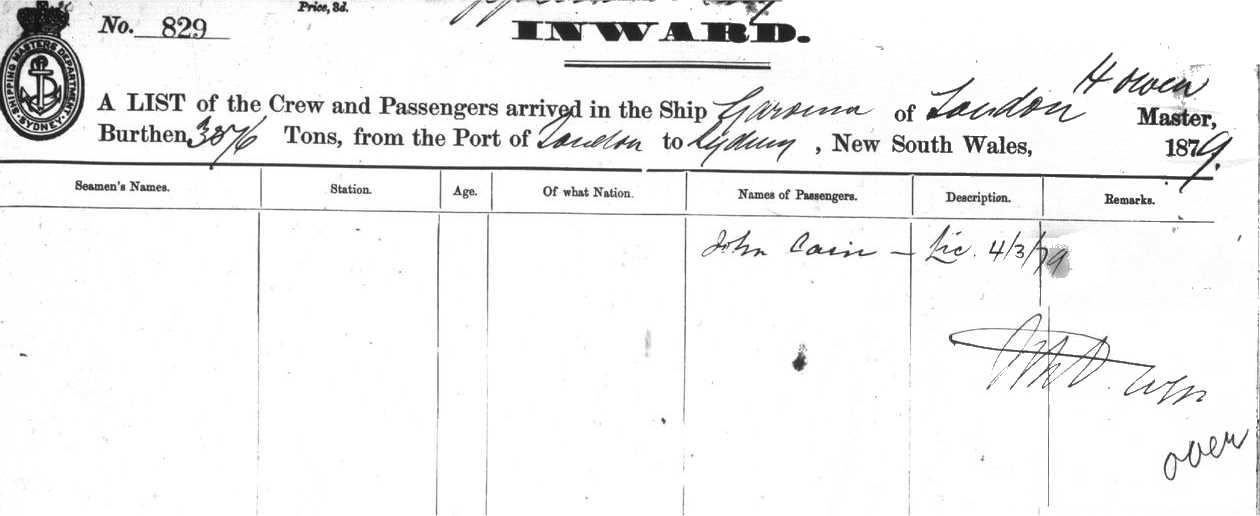 Price, 3d.
No. 829
INWARD.
SHIPPING MASTERS DEPARTMENT SYDNEY
H Owen
A LIST of the Crew and Passengers arrived in the Ship of London Master,
Burthen Tons, from the Port of London to Sydney, New South Wales, 1879.
Seamen's Names. Station. Age. Of what Nation. Names of Passengers. Description. Remarks.
John Cain — Lic. 4/3/79
over